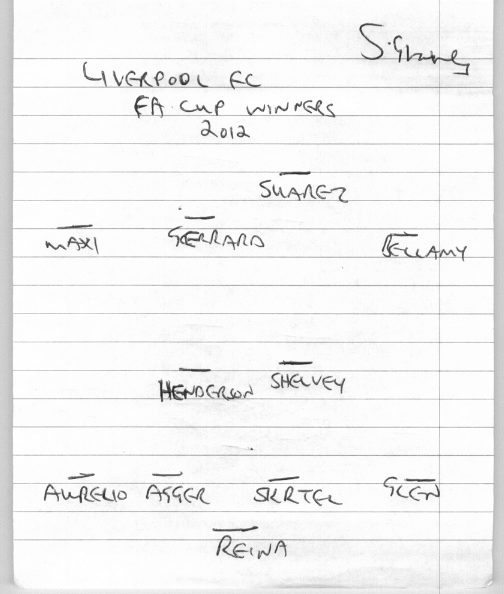 LIVERPOOL FC
FA CUP WINNERS
2012
SUAREZ
MAXI GERRARD BELLAMY
HENDERSON SHELVEY
AURELIO AGGER SKRTEL GLEN
REINA